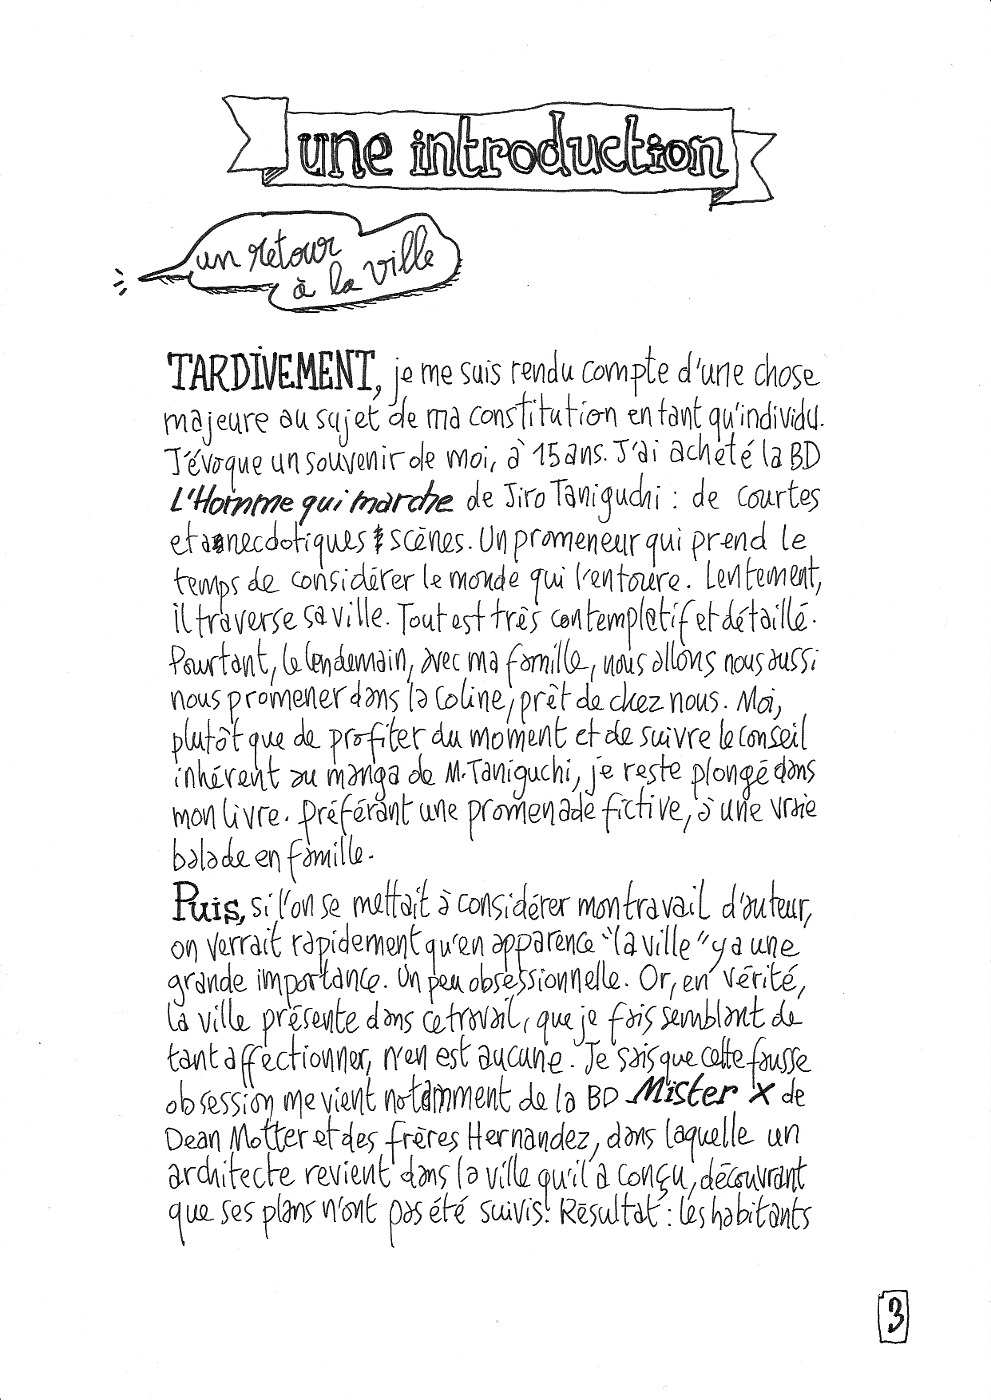 une introduction
un retour
à la ville
TARDIVEMENT, je me suis rendu compte d'une chose
majeure au sujet de ma constitution en tant qu'individu.
J'évoque un souvenir de moi, à 15 ans. J'ai acheté la BD
L'Homme qui marche de Jiro Taniguchi : de courtes
et anecdotiques scènes. Un promeneur qui prend le
temps de considérer le monde qui l'entoure. Lentement,
il traverse sa ville. Tout est très contemplatif et détaillé.
Pourtant, le lendemain, avec ma famille, nous allons nous aussi
nous promener dans la coline, prêt de chez nous. Moi,
plutôt que de profiter du moment et de suivre le conseil
inhérent au manga de M. Taniguchi, je reste plongé dans
mon livre. Préférant une promenade fictive, à une vraie
balade en famille.
Puis, si l'on se mettait à considérer mon travail d'auteur,
on verrait rapidement qu'en apparence "la ville" y a une
grande importance. Un peu obsessionnelle. Or, en vérité,
la ville présente dans ce travail, que je fais semblant de
tant affectionner, n'en est aucune. Je sais que cette fausse
obsession me vient notamment de la BD Mister X de
Dean Motter et des frères Hernandez, dans laquelle un
architecte revient dans la ville qu'il a conçu, découvrant
que ses plans n'ont pas été suivis! Résultat : les habitants
3